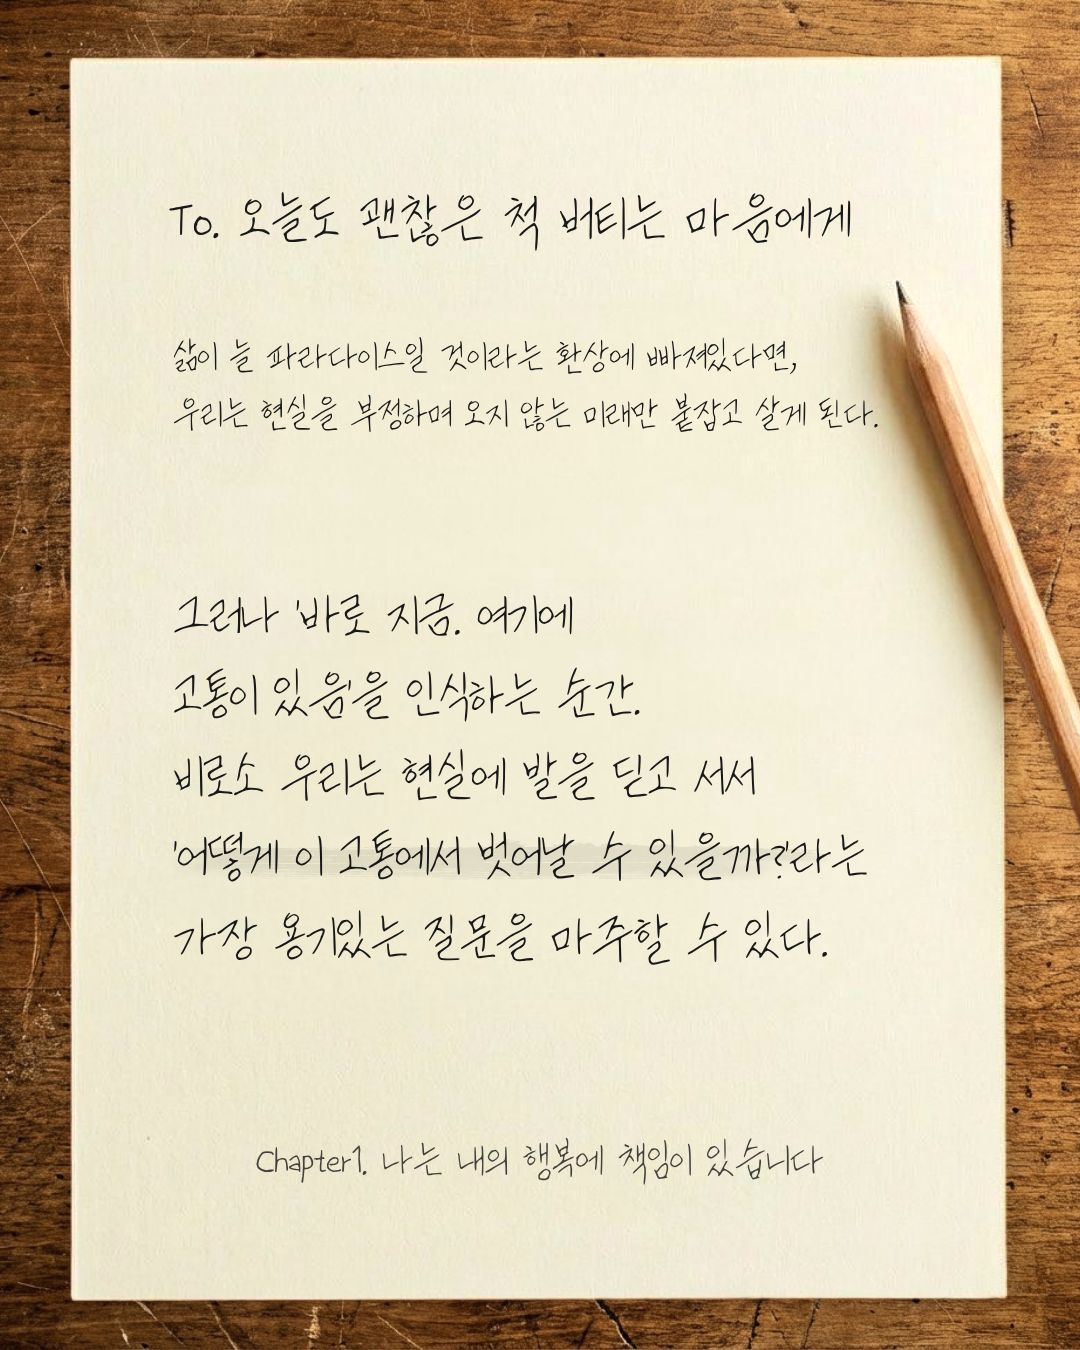 To. 오늘도 괜찮은 척 버티는 마음에게
삶이 늘 파라다이스일 것이라는 환상에 빠져있다면,
우리는 현실을 부정하며 오지 않는 미래만 붙잡고 살게 된다.
그러나 '바로 지금. 여기에
고통이 있음'을 인식하는 순간.
비로소 우리는 현실에 발을 딛고 서서
'어떻게 이 고통에서 벗어날 수 있을까?'라는
가장 용기있는 질문을 마주할 수 있다.
Chapter1. 나는 내의 행복에 책임이 있습니다